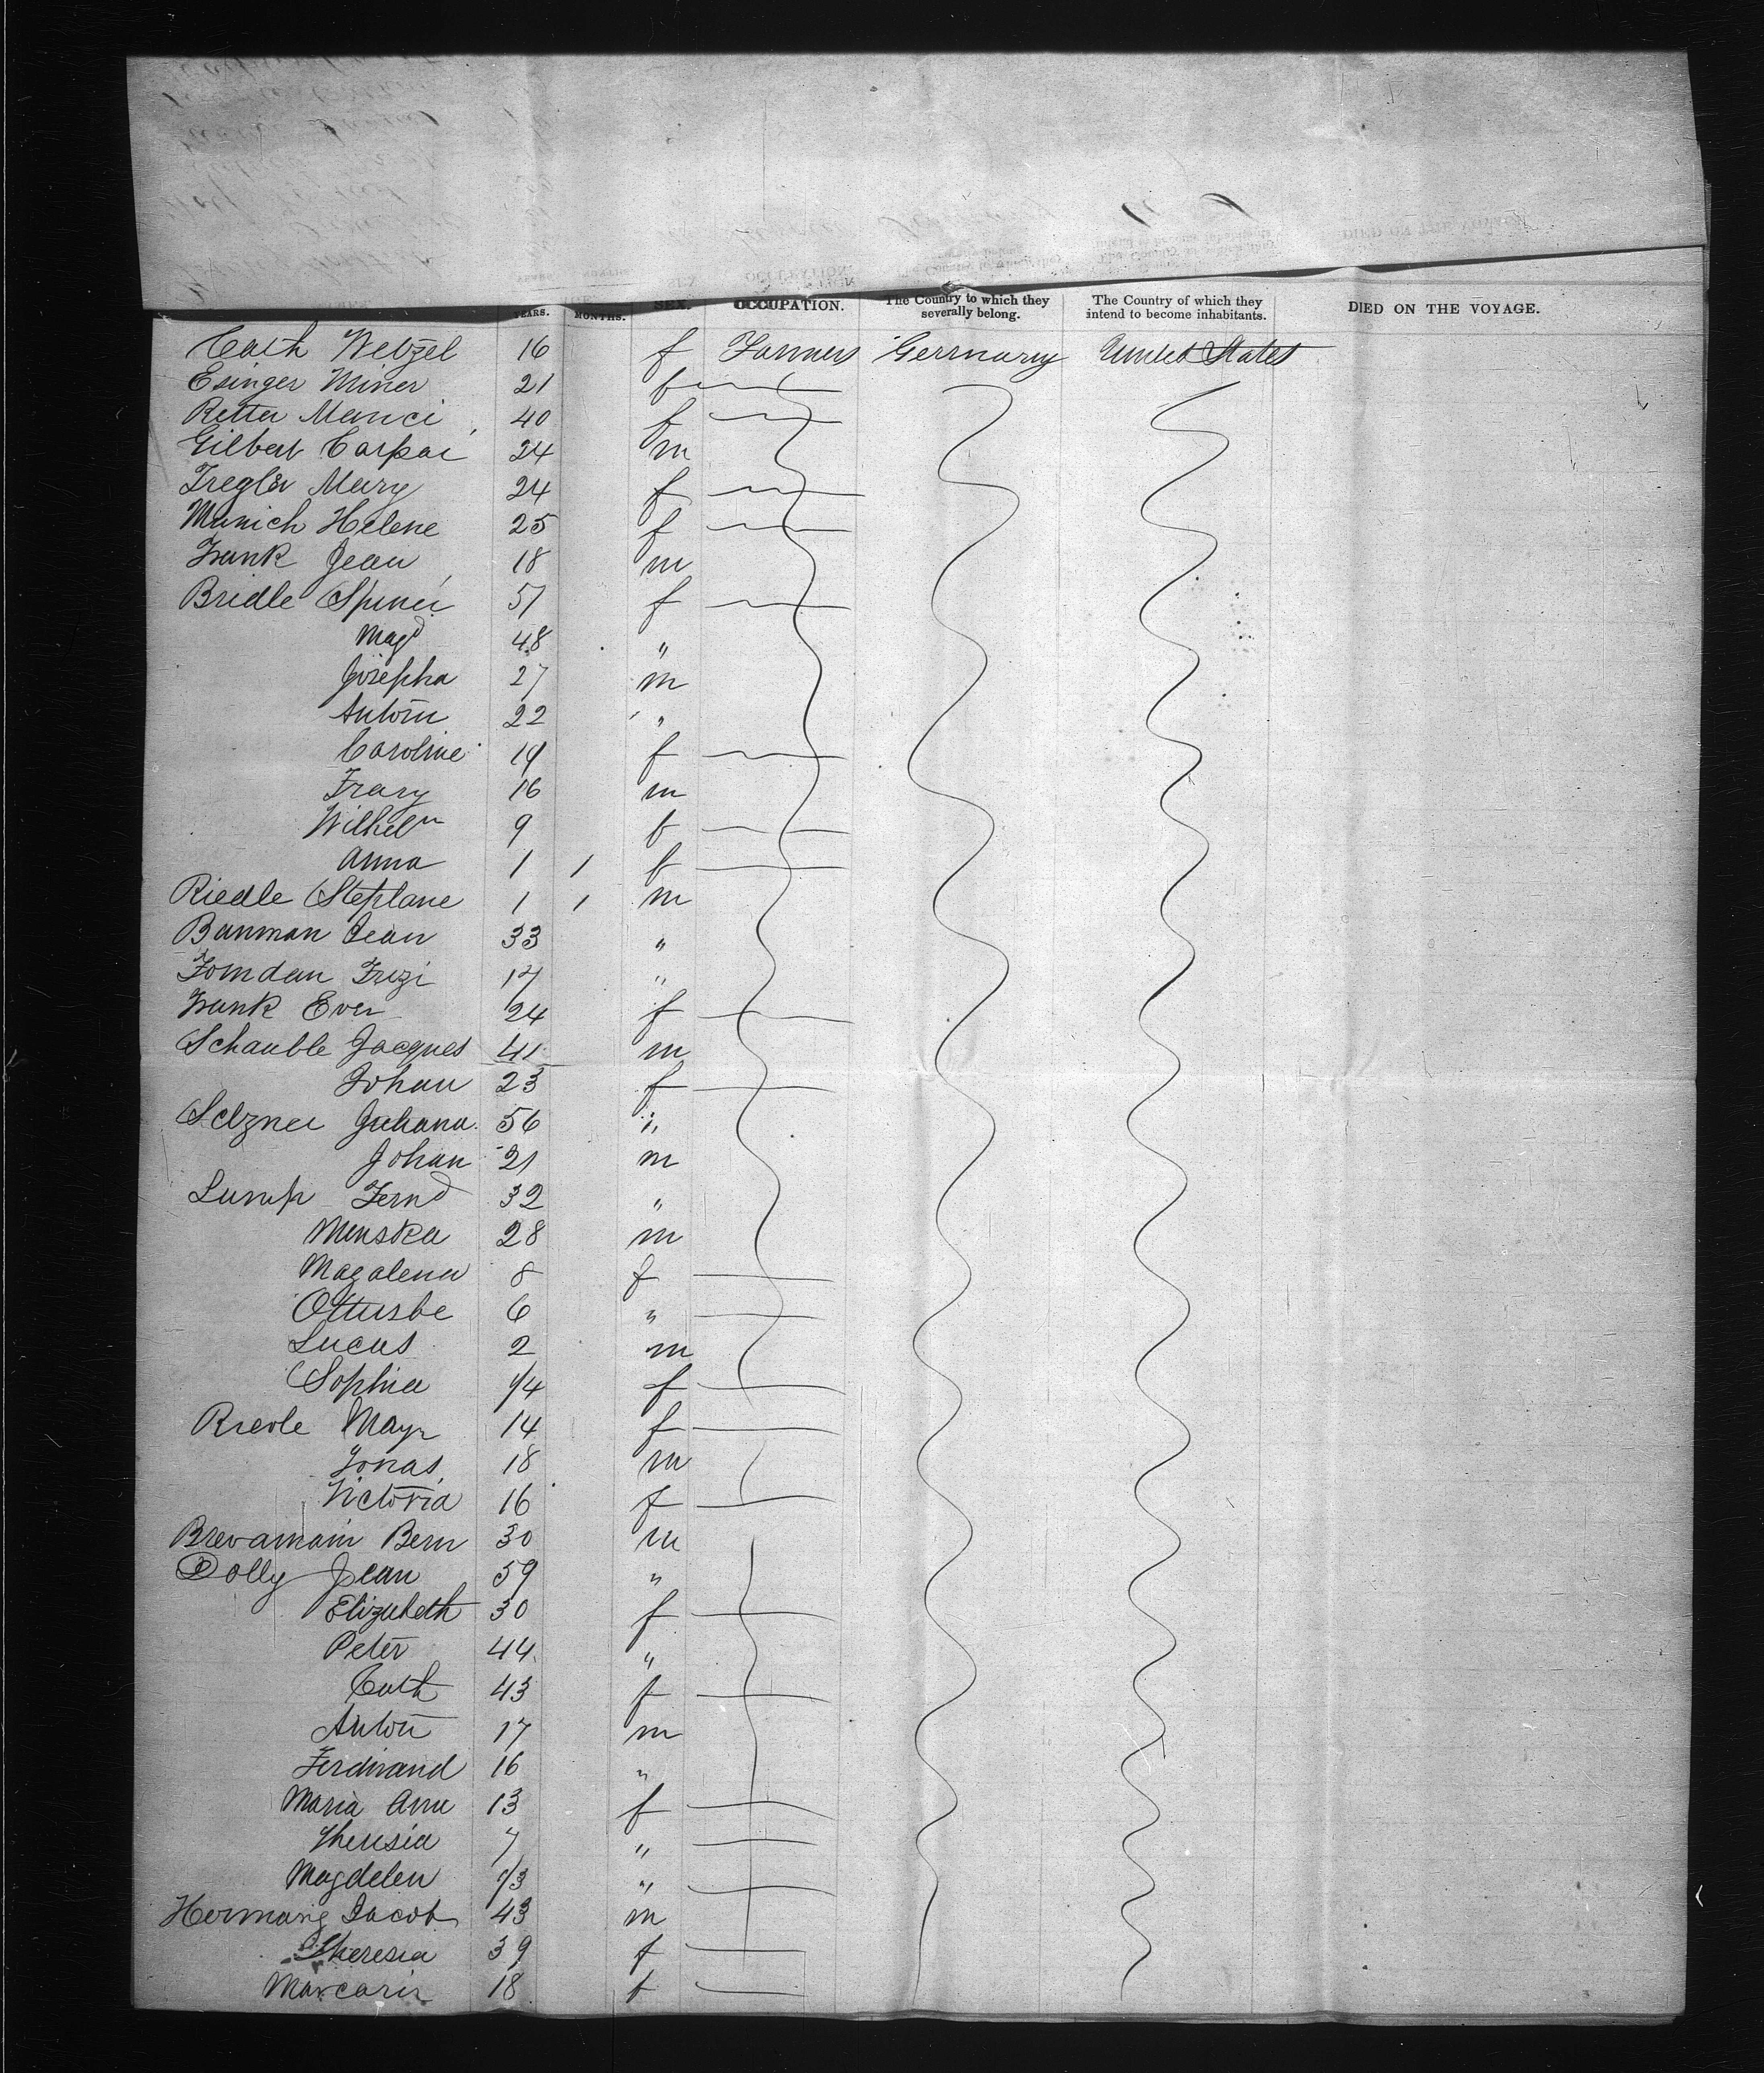 YEARS. MONTHS. SEX. OCCUPATION. The Country to which they severally belong. The Country of which they intend to become inhabitants. DIED ON THE VOYAGE.
Cath Wetzel 16 f Farmers Germany United States
Esinger Miner 21 f
Retter Manci 40 f
Gilbert Carpai 24 m
Tregler Mary 24 f
Munich Helene 25 f
Frank Jean 18 m
Bridle 51 f
Magd 48 "
Josepha 27 m
Antoin 22 "
Caroline 19 f
Franz 16 m
Wilhelm 9 f
Anna 1 1 f
Riedle Stephane 1 1 m
Banman Jean 33 "
Fomdan Frizi 17 "
Frank Ever 24 f
Schauble Jacques 41 m
Johan 23 f
Selzner Juhana 56 "
Johan 21 m
Lump Fernd 32 "
Menska 28 m
Magalena 8 f
6 "
Lucas 2 m
Sophia 1/4 f
Riedle Mayr 14 f
Jonas 18 m
Victoria 16 f
Bern 30 m
Dolly Jean 59 "
Elizabeth 30 f
Peter 44 "
Cath 43 f
Anton 17 m
Ferdinand 16 "
Maria Ann 13 f
Thersia 7 "
Magdelen 1/3 "
Hermang Jacob 43 m
Theresia 39 f
Marcaris 18 f